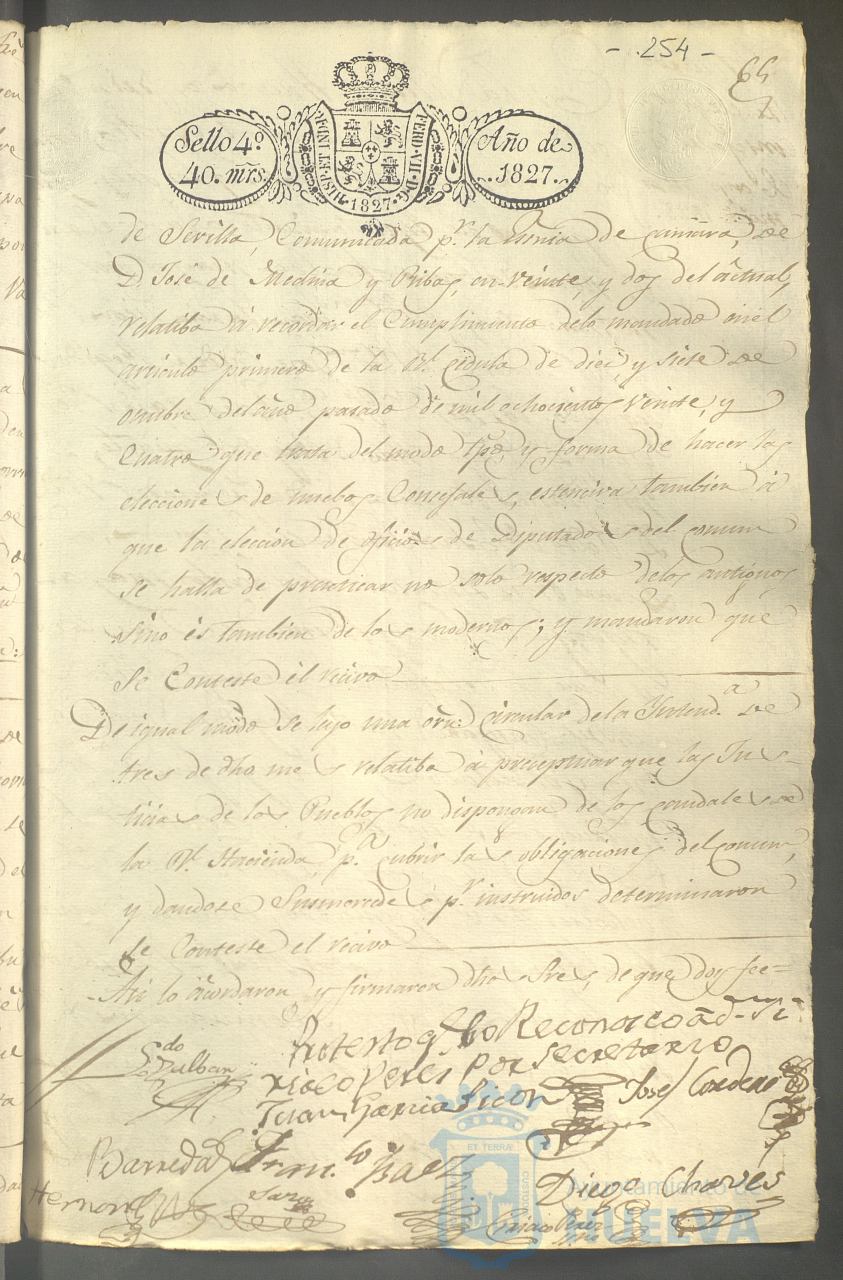 - 254 -
65
Sello 4º
40. mrs.
HISP. ET IND. R.
FERD. VII. D. G.
1827
Año de
1827.
de Sevilla, Comunicada pr. la de Camara, de
D. José de Medina y Ribas, en veinte, y dos del actual,
relatiba á recordar el Cumplimiento delo mandado en el
articulo primero de la Rl. Cedula de diez, y siete de
del año pasado de mil ochocientos veinte, y
Cuatro que trata del modo tpo, y forma de hacer las
elecciones de nuebos Consejales, estenciva tambien á
que la eleccion de oficios de Diputados del comun
se halla de practicar no solo respecto delos antiguos,
sino és tambien de los modernos; y mandaron que
se Conteste el recivo
De igual modo se leyo una orn. circular de la Yntenda. de
tres de dho mes relatiba á preceptuar que las Jus-
ticias de los Pueblos no dispongan de los caudales de
la Rl. Hacienda, pa. cubrir las obligaciones del comun,
y dandose Sus mercedes pr. instruidos determinaron
se Conteste el recivo
Asi lo acordaron y firmaron dhos Sres, de que doy fee=
Protesto q no Reconosco a dn. Si
riaco Peres por Secretario
Juan Garcia Picon
José Cordero
Barreda
Fran.co Baez
Diego Chaves
Ciriaco Perez
ET TERRÆ
Ayuntamiento de
HUELVA